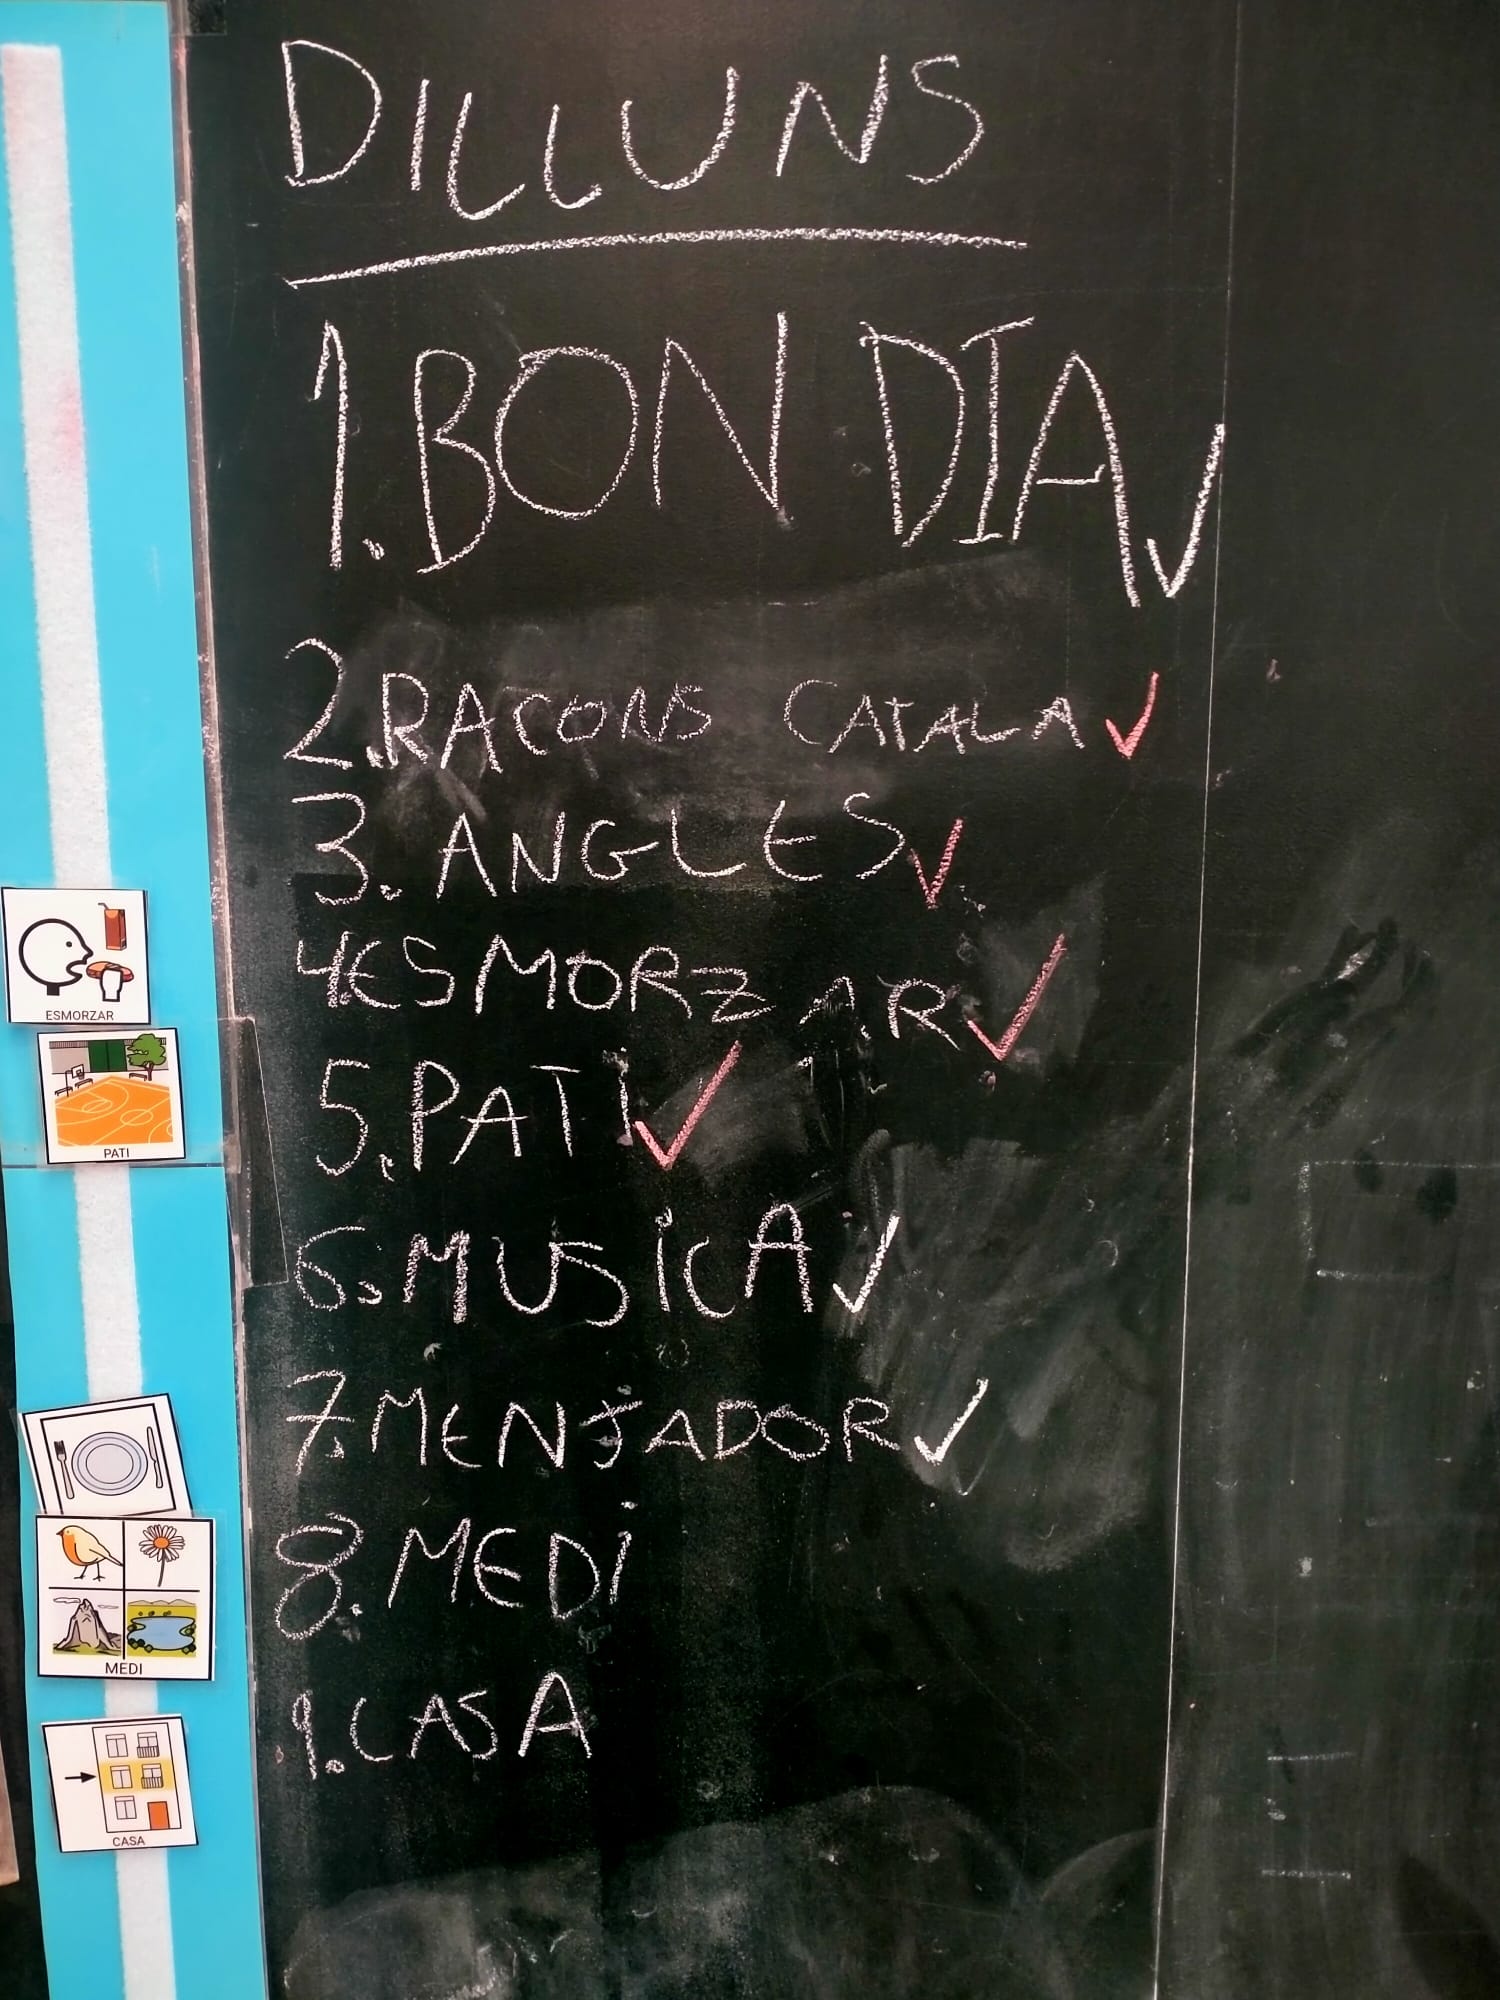 DILLUNS
1. BON DIA
2. RACONS CATALA
3. ANGLES
4. ESMORZAR
5. PATI
6. MUSICA
7. MENJADOR
8. MEDI
9. CASA
ESMORZAR
PATI
MEDI
CASA